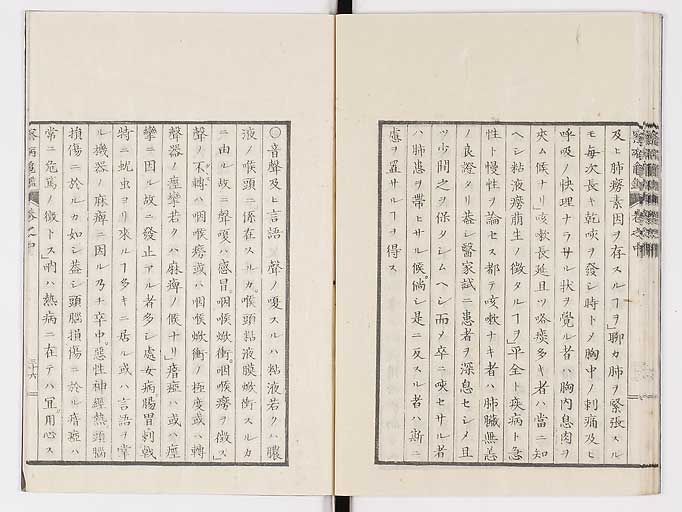 及ヒ肺癆素因ヲ存スルヿヲ」聊カ肺ヲ緊張スル
モ每次長キ乾咳ヲ發シ時トメ胸中ノ刺痛及ヒ
呼吸ノ快理ナラサル狀ヲ覺ル者ハ胸內息肉ヲ
夾ム候ナリ咳嗽長延且ツ咯痰多キ者ハ當ニ知
ヘシ粘液癆萠生ノ徵タルヿヲ」平全ト疾病ト急
性ト慢性ヲ論セス都テ咳嗽ナキ者ハ肺臟無恙
ノ良證タリ葢シ醫家試ニ患者ヲ深息セシメ且
ツ少間之ヲ保タシムヘシ而メ卒ニ咳セサル者
ハ肺恙ヲ帶ヒサル候倘シ是ニ反スル者ハ斯ニ
慮ヲ置サルヿヲ得ス
〇音聲及ヒ言語 聲ノ嗄スルハ粘液若クハ膿
液ノ喉頭ニ係在スルカ喉頭黏液膜焮衝スルカ
ニ由ル故ニ聲嗄ハ感冒咽喉焮衝咽喉癆ヲ徵ス」
聲ノ不轉ハ咽喉癆或ハ咽喉焮衝ノ極度或ハ轉
聲器ノ痙攣若クハ麻痺ノ候ナリ」瘖瘂ハ或ハ痙
攣ニ因ル故ニ發止アル者多シ處女病腸胃刺戟
特ニ蚘虫ヨリ來ルヿ多キニ居ル或ハ言語ヲ掌
ル機器ノ麻痺ニ因ル乃チ卒中惡性神經熱頭腦
損傷ニ於ルカ如シ葢シ頭腦損傷ニ於ル瘖瘂ハ
常ニ危篤ノ徵トス」吶ハ熱病ニ在テハ宜用心ス
三十六